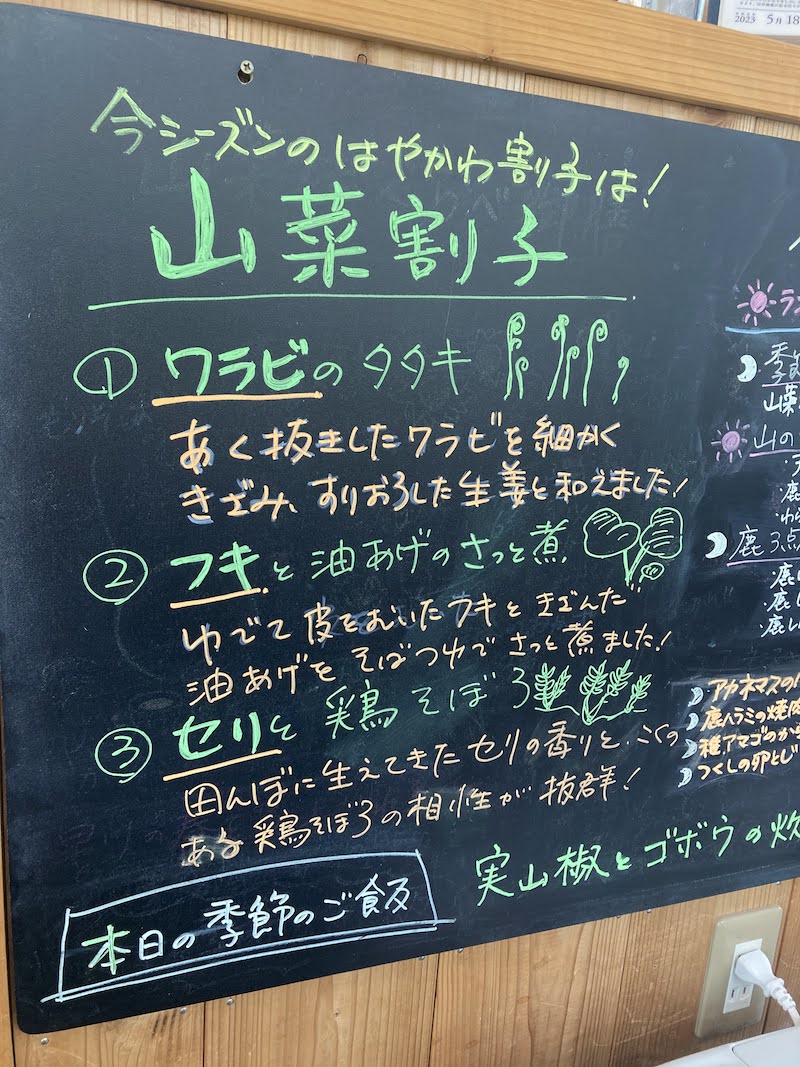 2023 5月18
今シーズンのはやかわ割子は!
山菜割子
① ワラビのタタキ
あく抜きしたワラビを細かく
きざみ、すりおろした生姜と和えました!
② フキと油あげのさっと煮
ゆでて皮をむいたフキときざんだ
油あげをそばつゆでさっと煮ました!
③ セリと鶏そぼろ
田んぼに生えてきたセリの香りと、こくの
ある鶏そぼろの相性が抜群!
本日の季節のご飯
実山椒とゴボウの炊
季節
山菜
山の
鹿3点
・鹿し
アカネマスの
鹿ハラミの焼肉
種アマゴのか
つくしの卵とじ